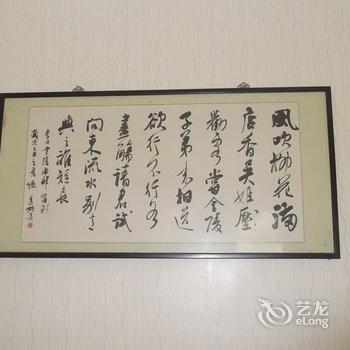 風吹柳花滿
店香吳姬壓
勸客嘗金陵
子弟来相送
欲行不行各
盡觴請君試
問東流水別意
與之誰短長
李白金陵酒肆留別
歲次
艺龙
eLong